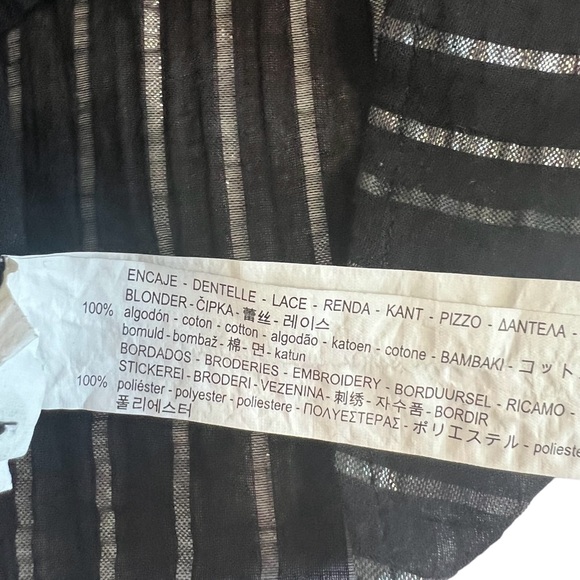 ENCAJE - DENTELLE - LACE - RENDA - KANT - PIZZO - ΔΑΝΤΕΛΑ -
BLONDER - ČIPKA - 蕾丝 - 레이스
100% algodón - coton - cotton - algodão - katoen - cotone - BAMBAKI - コット
bomuld - bombaž - 棉 - 면 - katun
BORDADOS - BRODERIES - EMBROIDERY - BORDUURSEL - RICAMO -
STICKEREI - BRODERI - VEZENINA - 刺绣 - 자수품 - BORDIR
100% poliéster - polyester - poliestere - ΠΟΛΥΕΣΤΕΡΑΣ - ポリエステル - polieste
폴리에스터